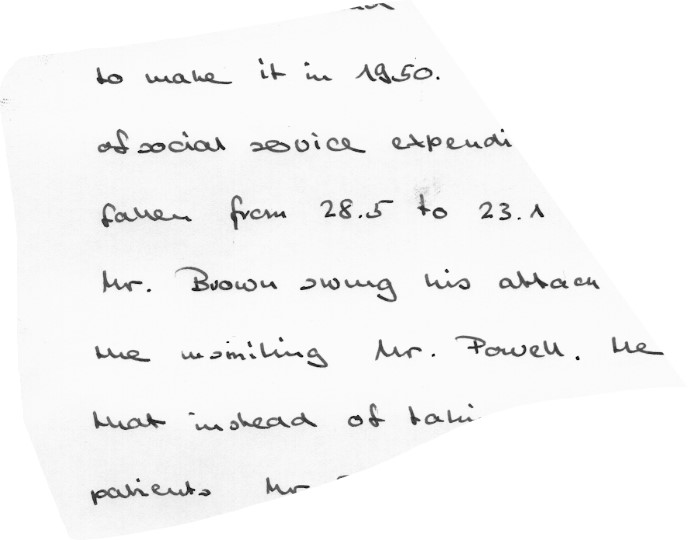 to make it in 1950.
of social service expendi
fallen from 28.5 to 23.1
Mr. Brown swung his attack
the Mr. Powell. He
that instead of taki
patients Mr